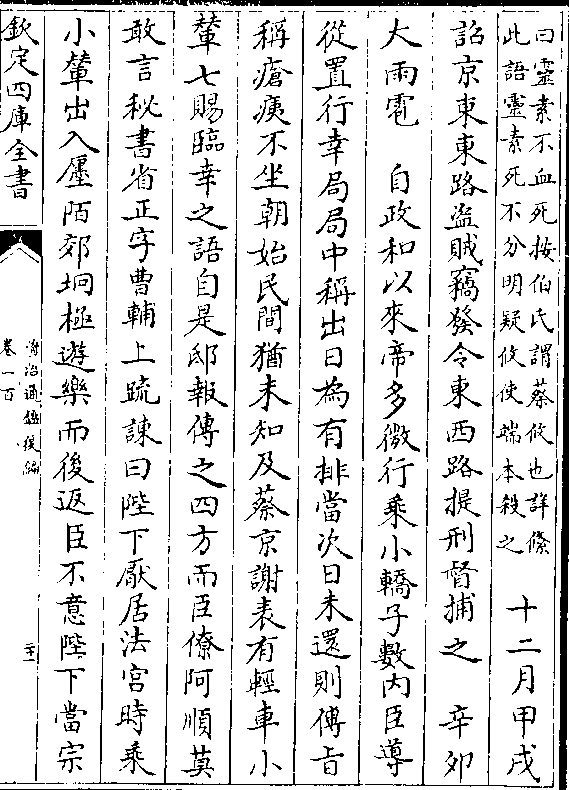 曰靈素不血死按伯氏謂蔡攸也詳絛
此語靈素死不分明疑攸使端本殺之
十二月甲戌
詔京東東路盜賊竊發令東西路提刑督捕之　辛卯
大雨雹　自政和以來帝多微行乘小轎子數内臣導
從置行幸局局中稱出日為有排當次日未還則傳旨
稱瘡痍不坐朝始民間猶未知及蔡京謝表有輕車小
輦七賜臨幸之語自是邸報傳之四方而臣僚阿順莫
敢言秘書省正字曹輔上疏諫曰陛下厭居法宫時乘
小輦出入廛陌郊坰極遊樂而後返臣不意陛下當宗
欽定四庫全書
資治通鑑後編
卷一百
二十一